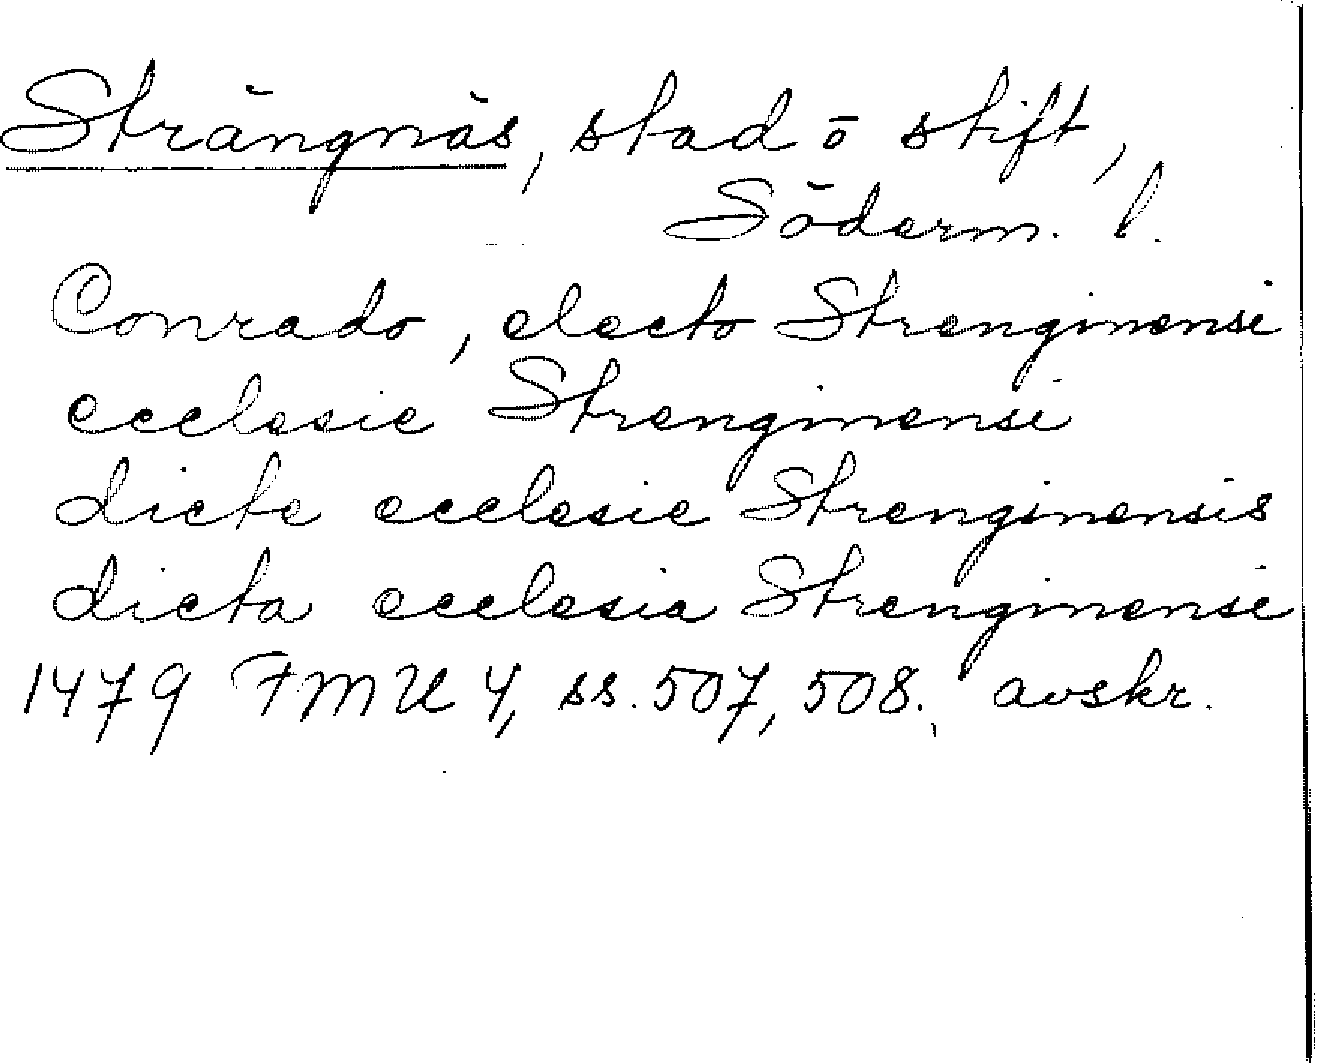 Strängnäs, stad o stift,
Söderm. l.
Conrado, electo Strenginensi
ecclesie Strenginensi
dicte ecclesie Strenginensis
dicta ecclesia Strenginensi
1479 FMU 4, ss. 507, 508., avskr.